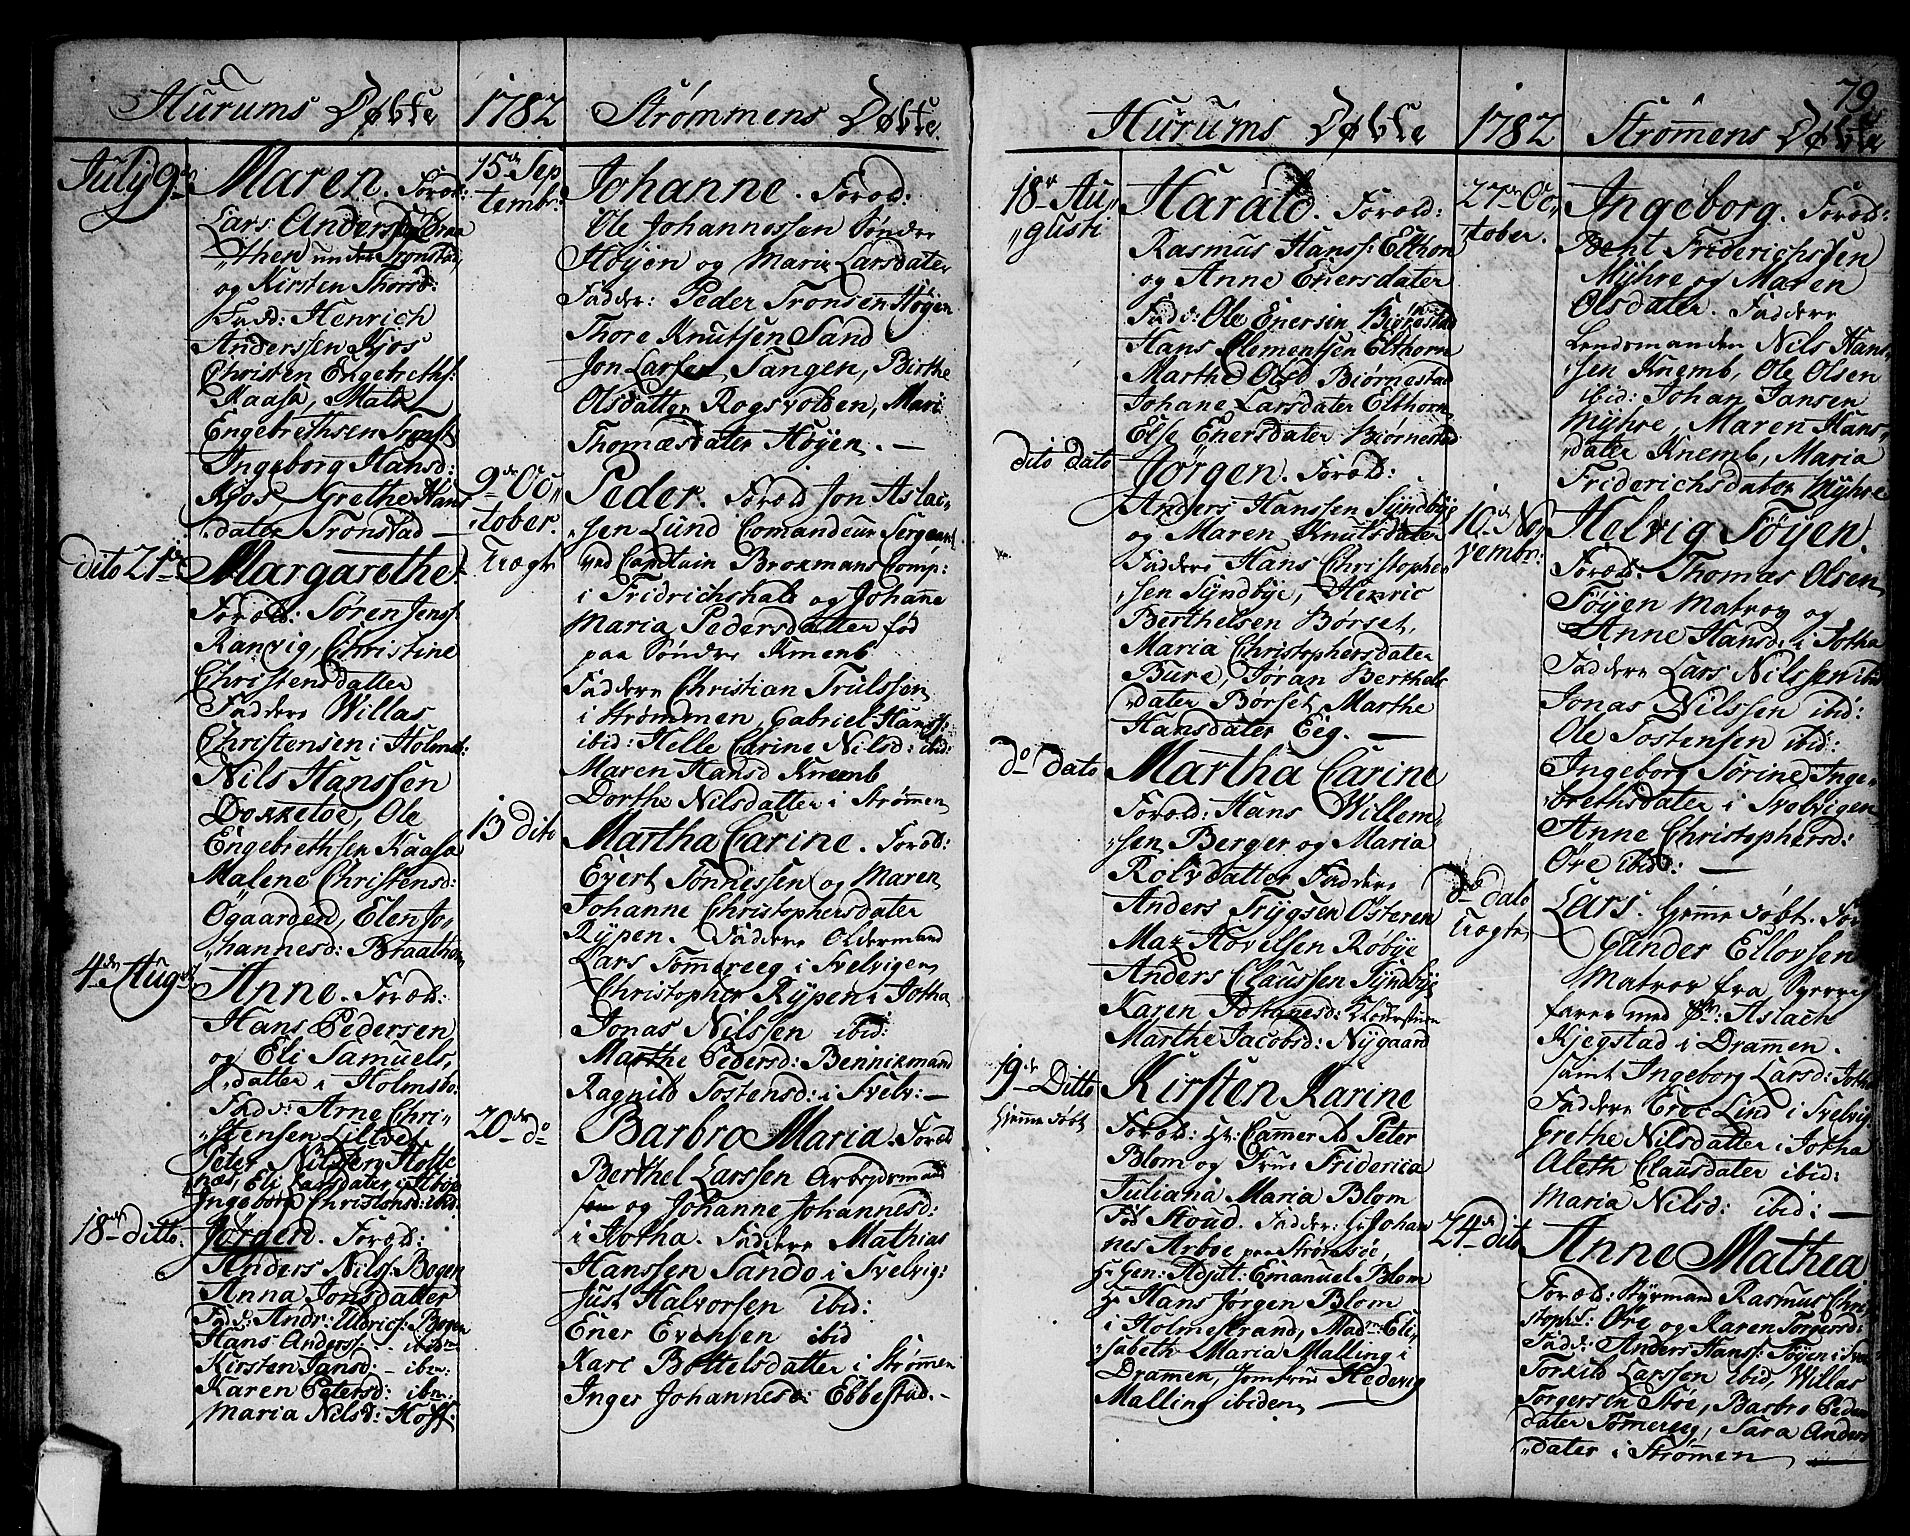 Hurums Døbte
1782
Strømmens Døbte
July 9de
Maren. Foræld:
Lars Anderss: Braa
then under Tronstad,
og Kirsten Thorsd:
Fadd: Henrich
Anderssen Kjos
Christen Engebreths:
Kaasa, Mats
Engebrethsen
Ingeborg Hansd:
Kjos, Grethe Hans
datter Tronstad —
dito 21de
Margarethe.
Foræld: Søren Jenss:
Ranvig, Christine
Christensdatter
Faddere Willas
Christensen i Holmsb:
Nils Hanssen
Dokketoe, Ole
Engebrethsen Kaasa
Malene Christensd:
Øgaarden, Elen Jo„
„hannesd: Braathen
4de Aug
Anne. Foræld:
Hans Pedersen
og Eli Samuels„
„datter i Holmsbo:
Fadd: Arne Chri„
„stensen Lilløe
Peter Nilssen Holte
Eli Larsdater
Ingeborg Christensd: ibid
18de ditto.
Jørgen. Foræld:
Anders Nilss: Bogen
Anna Jonsdatter
Fad: Andr: Uldrics: Bogen
Hans Anderss: ibidm
Kirsten Jansd: — ibm:
Karen Petersd: ibm:
Maria Nilsd: Hoff.
15de Sep
tembr:
Johanne. Foræld:
Ole Johannessen Søndre
Høyen og Maria Larsdater
Fadder: Peder Tronsen Høyen
Thore Knutsen Sand
Jon Larsen Tangen, Birthe
Olsdatter Rogsvolden, Mari
Thomæsdater Høyen. —
9de Oc„
„tober.
Peder. Foræld Jon Aslac„
„sen Lund Comandeur Sergeant
ved Capitain Brokmans Comp:
i Fridrichshald og Johanne
Maria Pedersdatter fød
paa Søndre Knemb
Faddere Christian Trulssen
i Strømmen, Gabriel Hanss:
ibid: Helle Carine Nilsd: ibid:
Maren Hansd Knemb
Dorthe Nilsdatter i Strømmen
13 dito
Martha Carine. Foræld:
Evert Tønnessen og Maren
Johanne Christophersdater
Rypen. Faddere Oldermand
Lars Tømmereeg i Svelvigen
Christopher Rypen i Jotha
Jonas Nilssen ibid:
Marthe Pedersd: Bennikmand
Ragnild Tostensd: i Svelv: —
20de do
Barbro Maria. Foræld
Berthel Larssen Arbejdsmand
og Johanne Johannesd:
i Jotha. Faddere Mathias
Hanssen Sando i Svelvig:
Just Halvorsen ibid:
Ener Evensen ibid
Kari Bottelsdatter i Strømmen
Inger Johannesd: Ebbestad. —
79
Hurums Døbte
1782
Strømmens Døbte
18de Au„
„gusti
Harald. Foræld:
Rasmus Hanss: Elthorn
og Anne Enersdater
Fadd: Ole Enersen Biørnestad
Hans Clementsen Elthorn
Marthe Olsd Biørnestad
Johane Larsdater Elthorn
Else Enersdater Biørnestad
dito dato
Jørgen. Foræld:
Anders Hanssen Syndbye
og Maren Knutsdater
Faddere Hans Christopher
„sen Syndbye, Henric
Berthelsen Børset,
Maria Christophersdater
Bure, Jøran Berthels
dater Børset, Marthe
Hansdater Eig. —
do dato
Martha Carine
Foræld: Hans Willem„
„sen Berger og Maria
Rolvdatter Faddere
Anders Trygsen Østeren
Maz Hovelssen Røbye
Anders Claussen Syndbye
Karen Johanesd:
Marthe Jacobsd: Nygaard
19de Ditto
hjemmedøbt
Kirsten Karine
Foræld: Hr: Cammer Rd Peter
Blom og Frue Fridericia
Juliana Maria Blom
Fød Stoud. Fadder: Hr Johan
nes Arboe paa Strømsøe,
Hr Gen: Adjut: Emanuel Blom
Hr Hans Jørgen Blom
i Holmestrand, Madme Eli„
„sabeth Maria Malling i
Dramen, Jomfrue Hedevig
Malling ibidem —
27de Oc„
„tober.
Ingeborg. Foræld:
Bent Friderichssen
Myhre og Maren
Olsdater. Faddere
Lendsmanden Nils Hans
„sen Knemb, Ole Olsen
ibid: Johan Jansen
Myhre, Maren Hans„
„dater Knemb, Maria
Friderichsdater Myhre
10de No„
vembr:
Helvig Føyen.
Foræld: Thomas Olsen
Føyen Matros og
Anne Hansd: i Jotha
Faddere Lars Nilssen ibid
Jonas Nilssen ibid:
Ole Tostensen ibid:
Ingeborg Sørine Inge„
„brethsdater i Svelvigen
Anne Christophersd:
Øre ibid: —
do dato
Lars. Hjemmedøbt. For
Gunder Ellovsen
Matros fra
farer med Sr: Aslach
Kjegstad i Dramen.
samt Ingeborg Larsd: Jotha
Faddere Eric Lind i Svelvig
Grethe Nilsdatter i Jotha
Aleth Clausdater ibid:
Maria Nilsd: ibid: —
24de dito
Anne Mathea
Foræld: Styrmand Rasmus Chri
stophs: Øre og Karen Torgersd:
Fadd: Anders Hanss: Føyen i
Torkild Larssen ibid, Willas
Torgersen Støe, Barbro Peders
dater Tømereeg, Sara Anders
„dater i Strømmen —